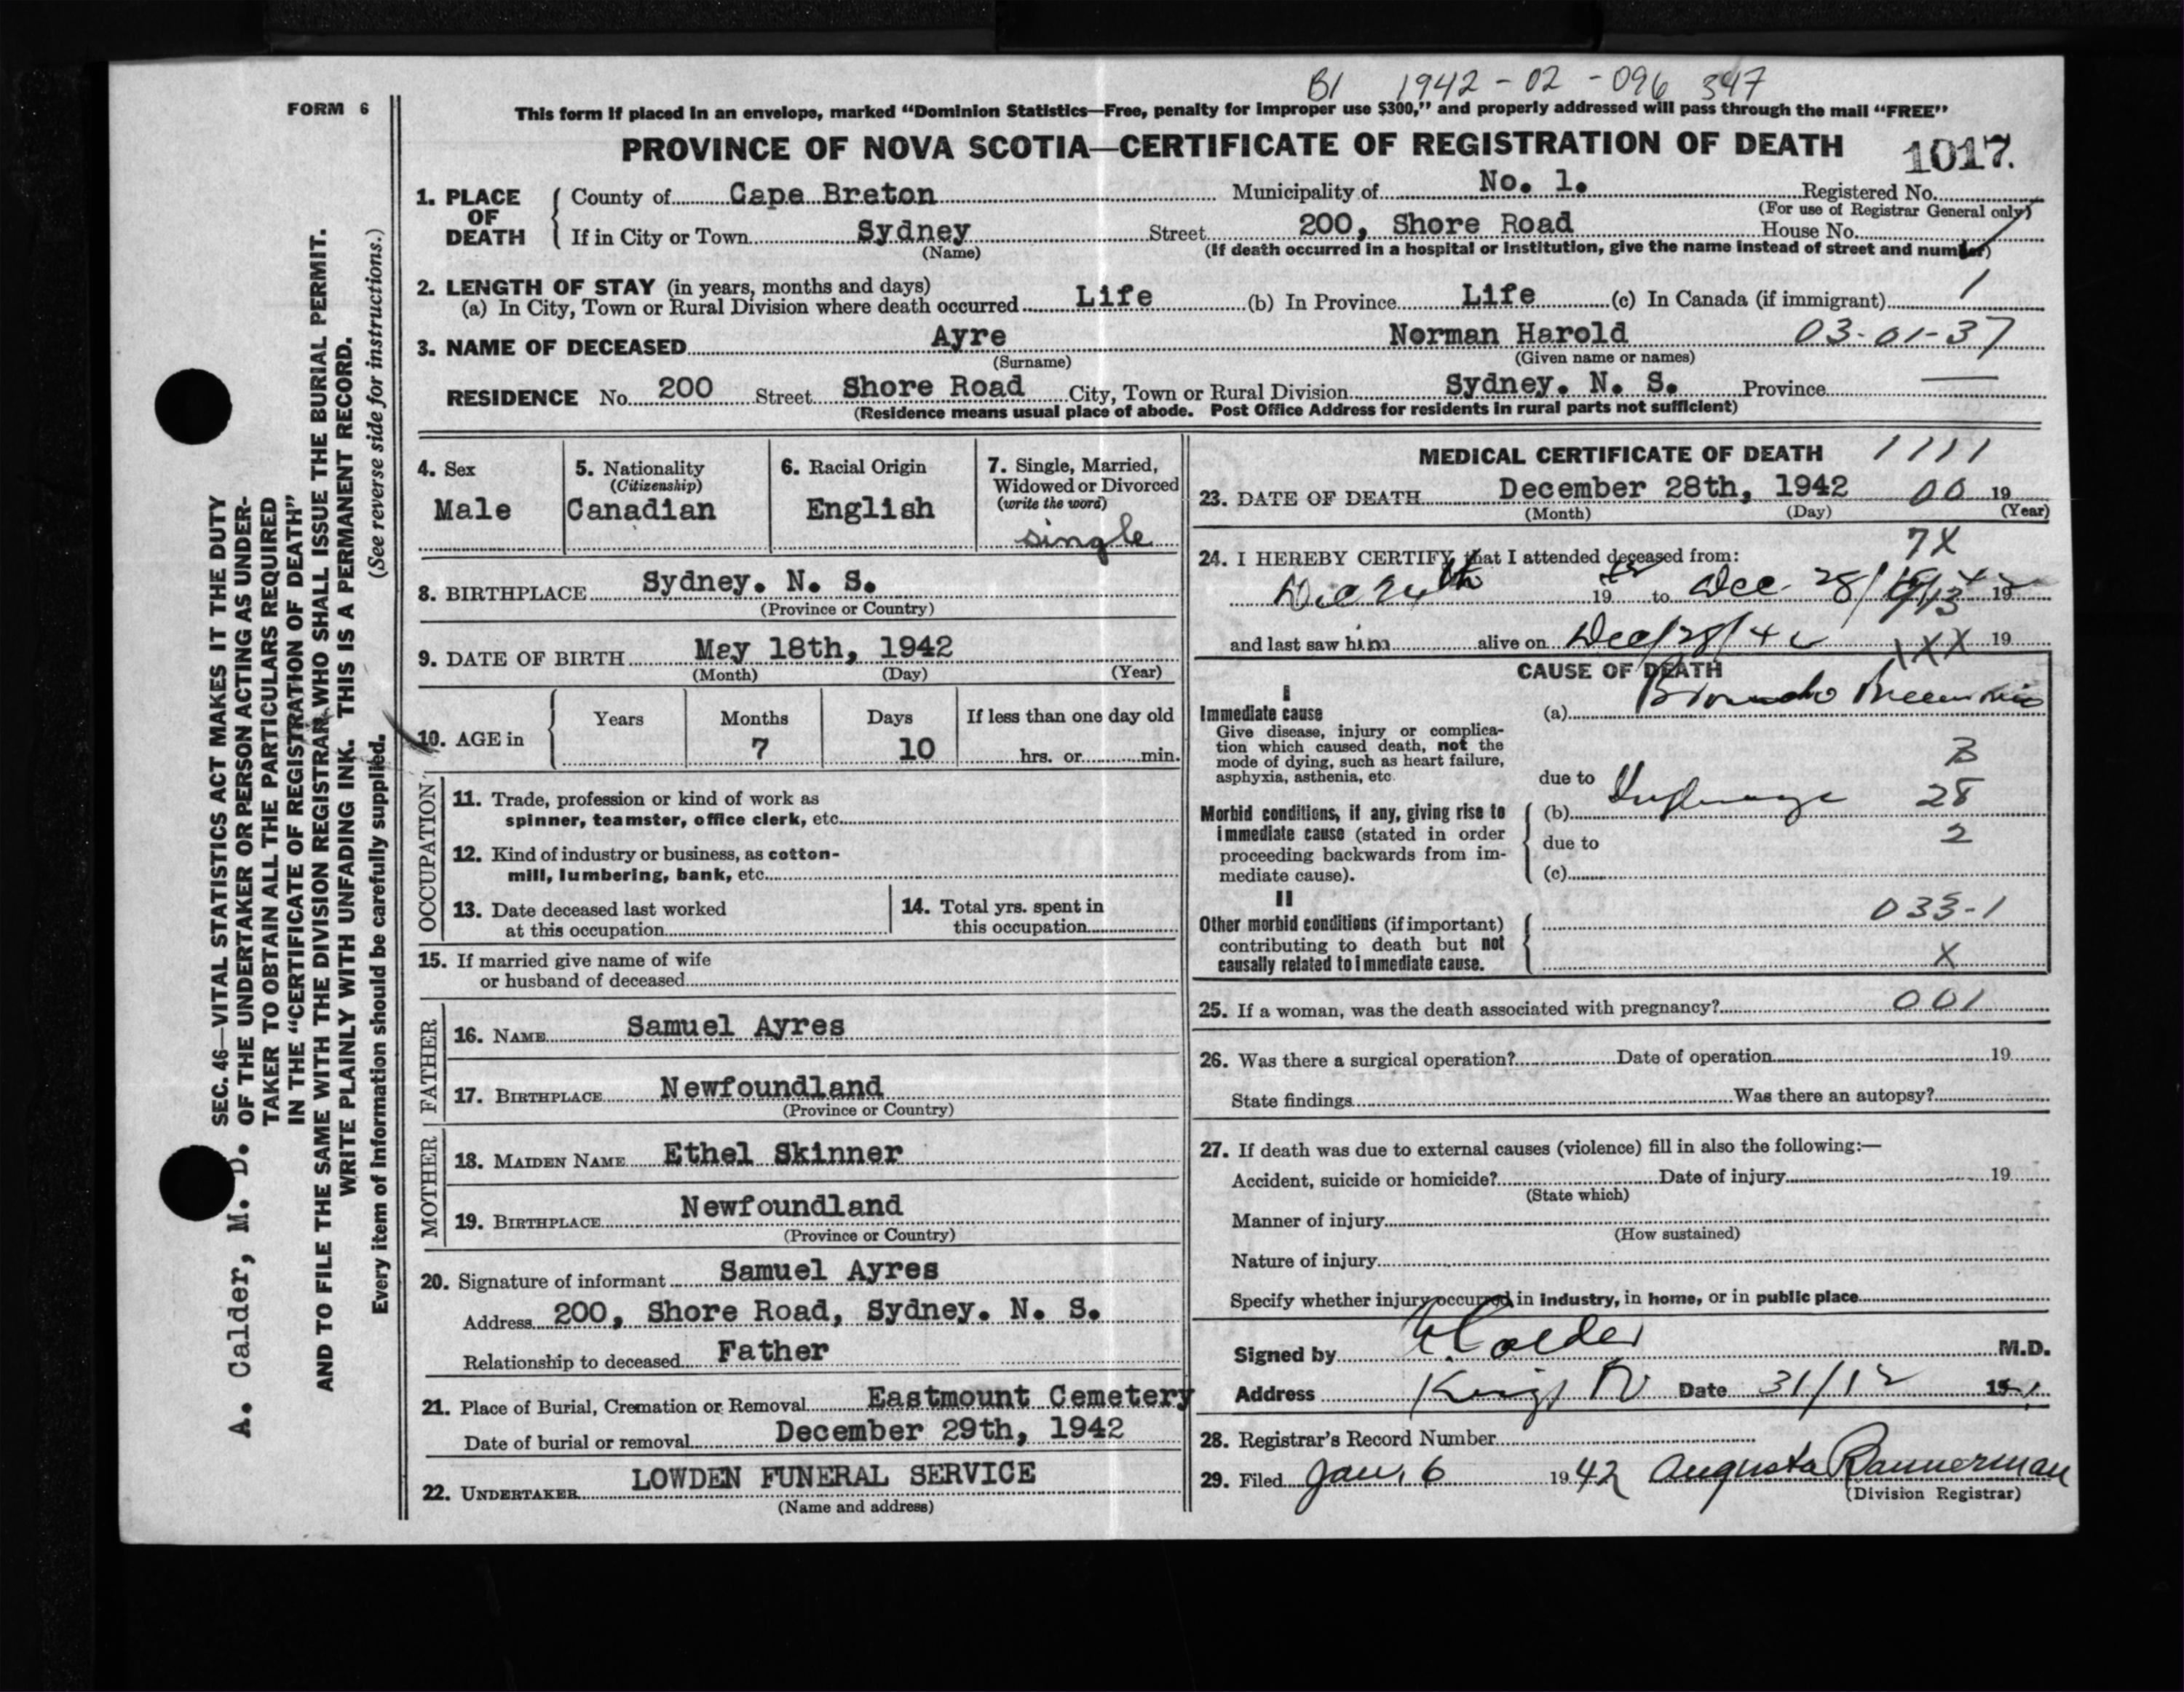 B1 1942-02-096347
FORM 6
This form if placed in an envelope, marked “Dominion Statistics—Free, penalty for improper use $300,” and properly addressed will pass through the mail “FREE”
PROVINCE OF NOVA SCOTIA—CERTIFICATE OF REGISTRATION OF DEATH 1017.
1. PLACE OF DEATH County of Cape Breton Municipality of No. 1. Registered No.
(For use of Registrar General only)
If in City or Town Sydney Street 200, Shore Road House No.
(Name) (If death occurred in a hospital or institution, give the name instead of street and number)
2. LENGTH OF STAY (in years, months and days)
(a) In City, Town or Rural Division where death occurred Life (b) In Province Life (c) In Canada (if immigrant) 1
3. NAME OF DECEASED Ayre Norman Harold 03-01-37
(Surname) (Given name or names)
RESIDENCE No. 200 Street Shore Road City, Town or Rural Division Sydney. N. S. Province —
(Residence means usual place of abode. Post Office Address for residents in rural parts not sufficient)
4. Sex
Male
5. Nationality
(Citizenship)
Canadian
6. Racial Origin
English
7. Single, Married,
Widowed or Divorced
(write the word)
single
8. BIRTHPLACE Sydney. N. S.
(Province or Country)
9. DATE OF BIRTH May 18th, 1942
(Month) (Day) (Year)
10. AGE in Years Months Days If less than one day old
7 10 hrs. or min.
OCCUPATION
11. Trade, profession or kind of work as
spinner, teamster, office clerk, etc.
12. Kind of industry or business, as cotton-
mill, lumbering, bank, etc.
13. Date deceased last worked
at this occupation
14. Total yrs. spent in
this occupation
15. If married give name of wife
or husband of deceased
FATHER
16. NAME Samuel Ayres
17. BIRTHPLACE Newfoundland
(Province or Country)
MOTHER
18. MAIDEN NAME Ethel Skinner
19. BIRTHPLACE Newfoundland
(Province or Country)
20. Signature of informant Samuel Ayres
Address 200, Shore Road, Sydney. N. S.
Relationship to deceased Father
21. Place of Burial, Cremation or Removal Eastmount Cemetery
Date of burial or removal December 29th, 1942
22. UNDERTAKER LOWDEN FUNERAL SERVICE
(Name and address)
MEDICAL CERTIFICATE OF DEATH 1111
23. DATE OF DEATH December 28th, 1942 00 19
(Month) (Day) (Year)
24. I HEREBY CERTIFY that I attended deceased from: 7X
Dec 19 to Dec. 28/ 19
and last saw him alive on Dec/28/42 1XX 19
CAUSE OF DEATH
I
Immediate cause
Give disease, injury or complica-
tion which caused death, not the
mode of dying, such as heart failure,
asphyxia, asthenia, etc.
(a) Broncho Pneumonia
B
due to
Morbid conditions, if any, giving rise to
immediate cause (stated in order
proceeding backwards from im-
mediate cause).
(b) Influenza 28
due to 2
(c)
II
Other morbid conditions (if important)
contributing to death but not
causally related to immediate cause.
033-1
X
25. If a woman, was the death associated with pregnancy? 001
26. Was there a surgical operation? Date of operation 19
State findings Was there an autopsy?
27. If death was due to external causes (violence) fill in also the following:—
Accident, suicide or homicide? Date of injury 19
(State which)
Manner of injury
(How sustained)
Nature of injury
Specify whether injury occurred in industry, in home, or in public place
Signed by A Calder M.D.
Address Date 31/12 19
28. Registrar's Record Number
29. Filed Jan. 6 1942 Augusta Bannerman
(Division Registrar)
A. Calder, M. D.
SEC. 46—VITAL STATISTICS ACT MAKES IT THE DUTY
OF THE UNDERTAKER OR PERSON ACTING AS UNDER-
TAKER TO OBTAIN ALL THE PARTICULARS REQUIRED
IN THE “CERTIFICATE OF REGISTRATION OF DEATH”
AND TO FILE THE SAME WITH THE DIVISION REGISTRAR WHO SHALL ISSUE THE BURIAL PERMIT.
WRITE PLAINLY WITH UNFADING INK. THIS IS A PERMANENT RECORD.
Every item of information should be carefully supplied. (See reverse side for instructions.)